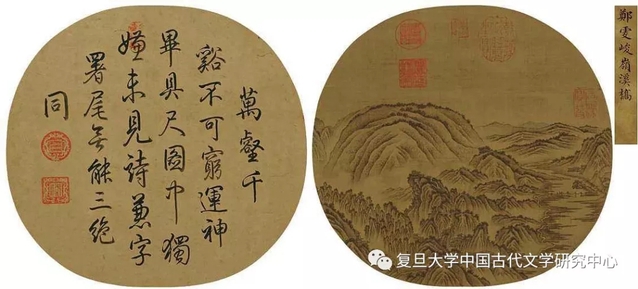 萬壑千
谿不可窮運神
畢具尺圖中獨
嫌未見詩兼字
署尾無能三絕
同
鄭虔峻嶺溪橋
复旦大学中国古代文学研究中心